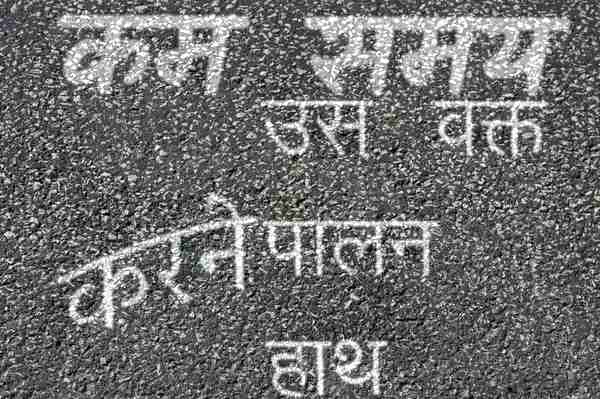 कम समय
उस वक्त
करने पालन
हाथ